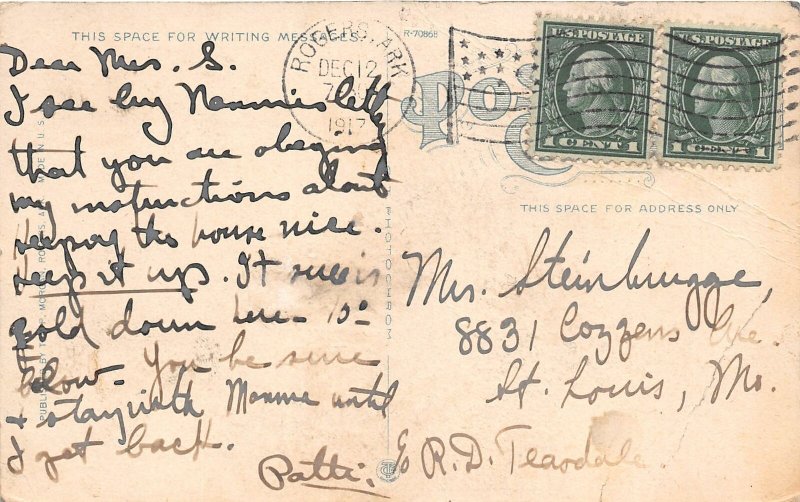 THIS SPACE FOR WRITING MESSAGES.
R-70868
ROGERS, ARK
DEC 12
1917
U.S. POSTAGE
1 CENT 1
U.S. POSTAGE
1 CENT 1
Post
THIS SPACE FOR ADDRESS ONLY
Dear Mrs. S.
I see by Mommies letter
that you are obeying
my instructions about
keeping the house nice.
keep it up. It sure is
cold down here - 10°
below. You be sure
& stay with Momma until
I get back.
Patti.
Mrs. Steinbrugge,
8831 Cozzens Ave.
St. Louis, Mo.
R. D. Teasdale.
PHOTOCHROM